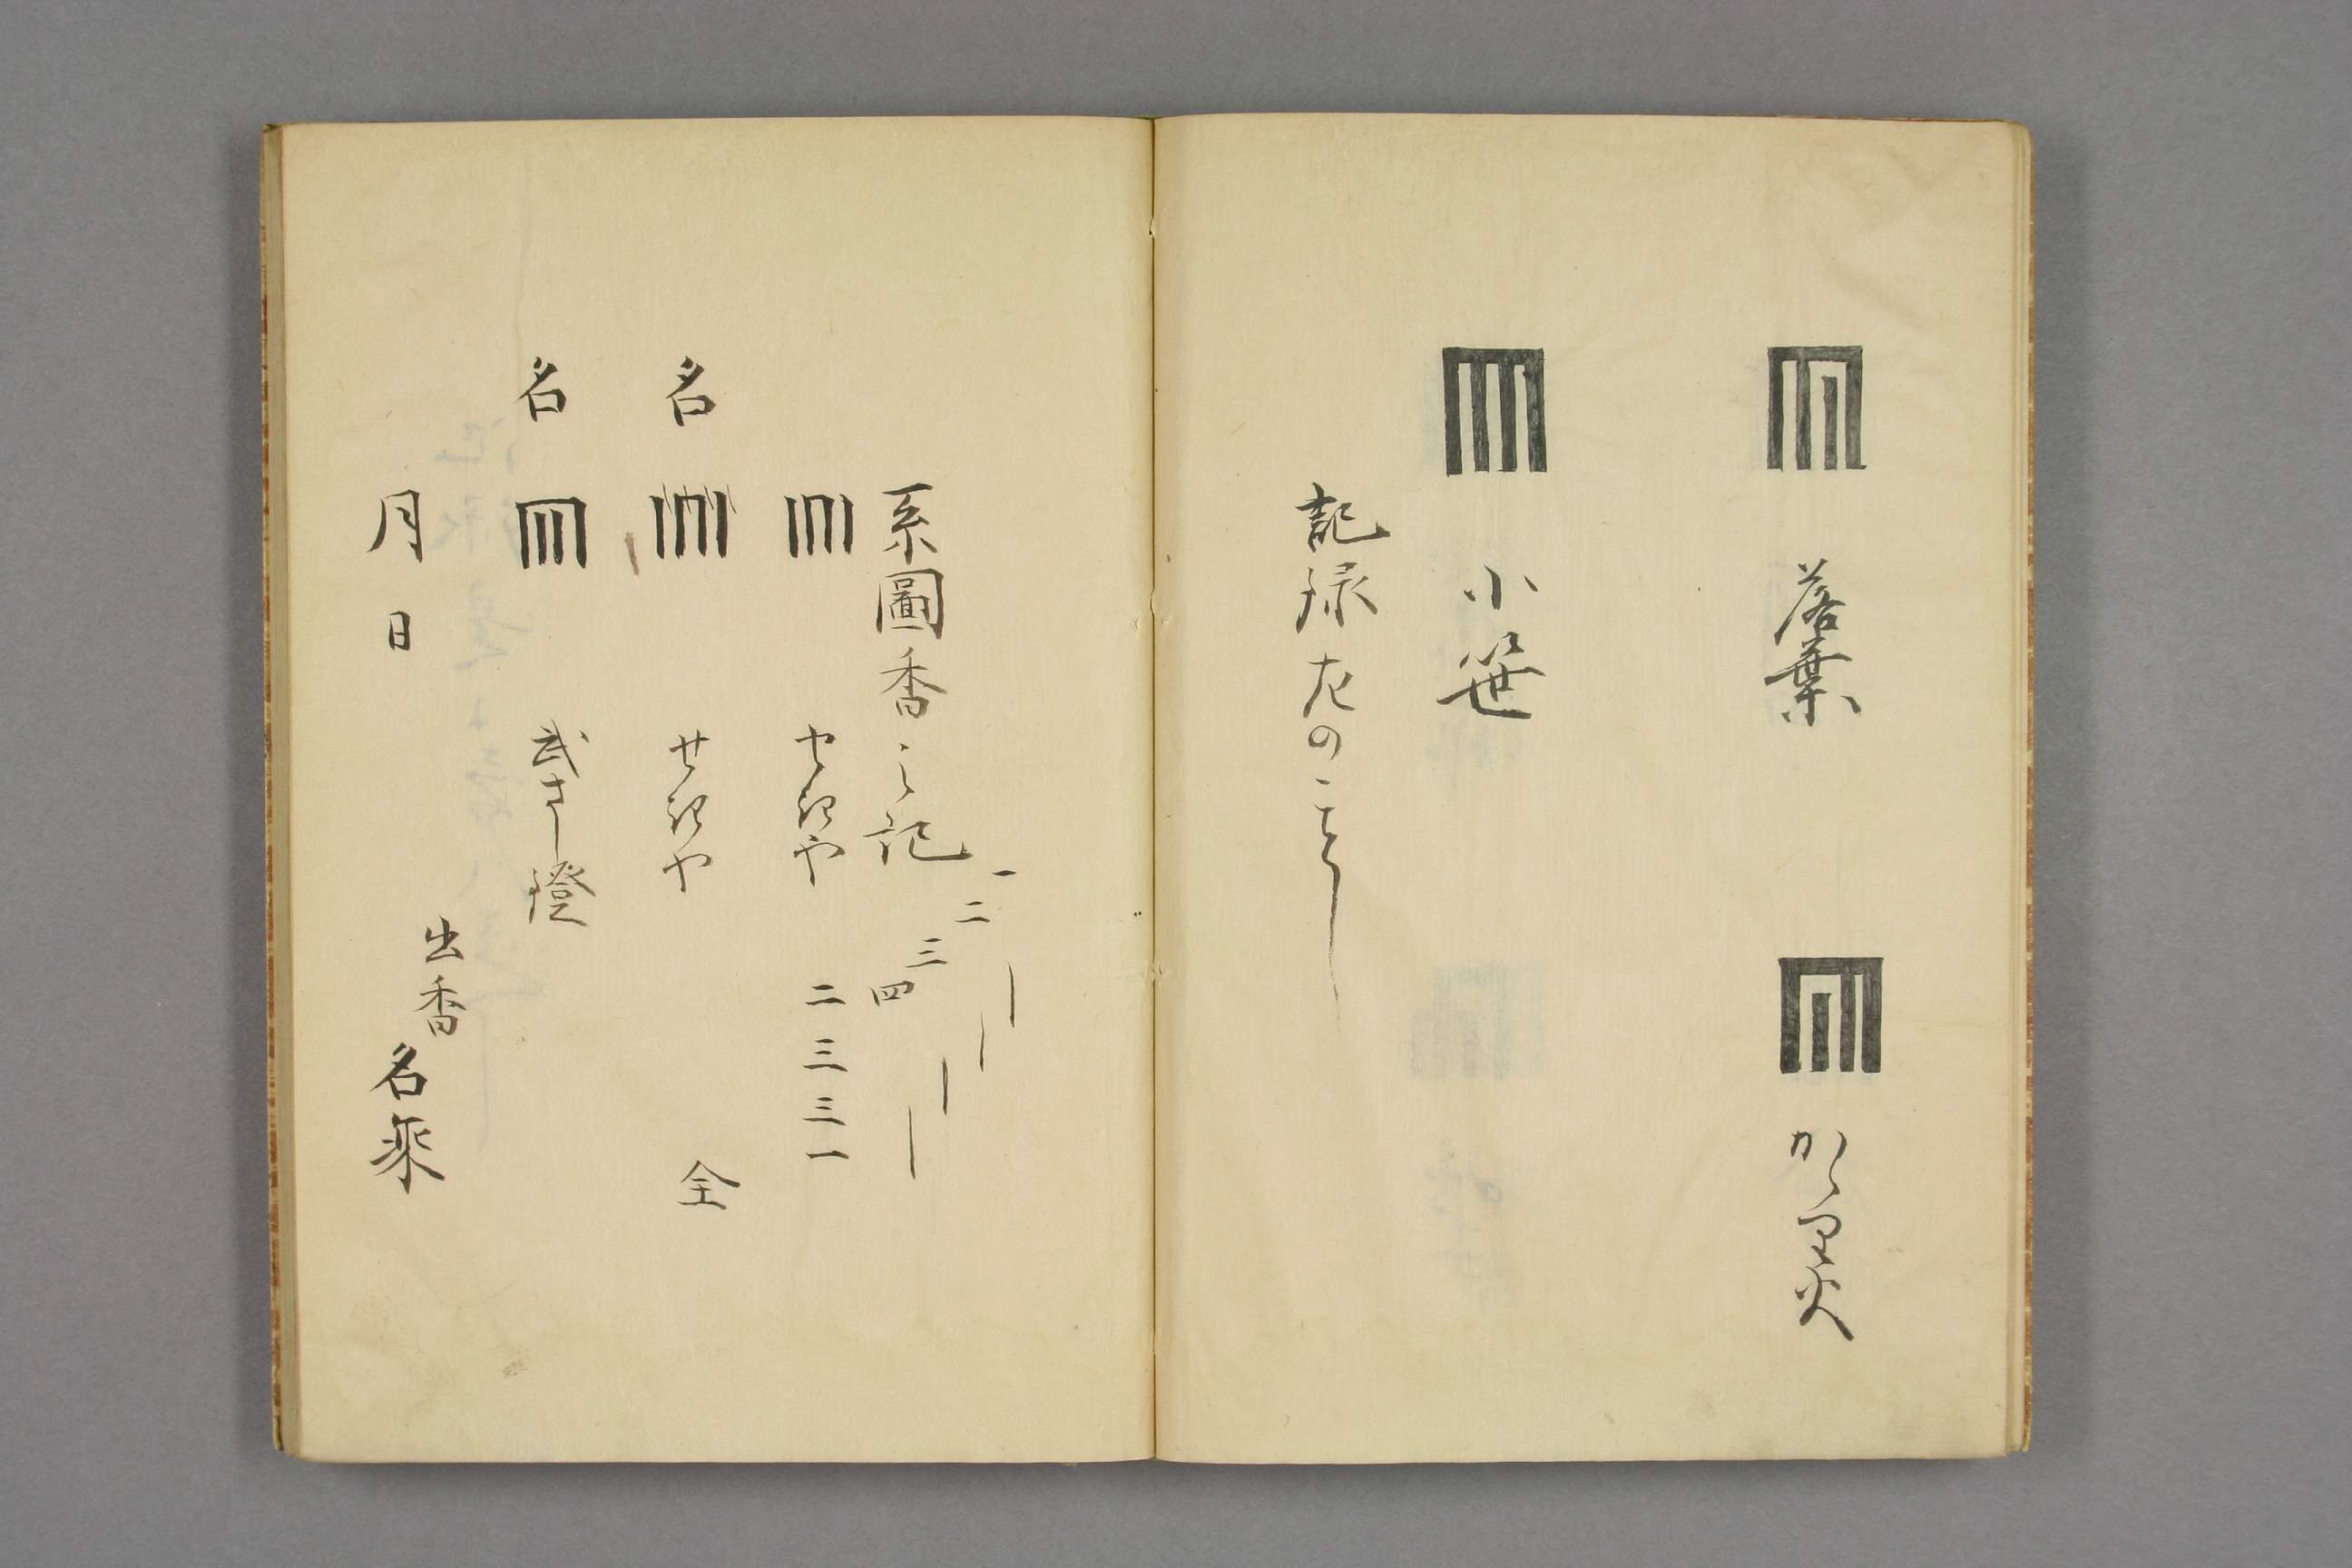 落葉
かゝり火
小笹
記録左のことし
系圖香之記
一
二
三
四
せきや
二
三
三
一
名
せきや
全
名
武さし鐙
出香
月日
名乘